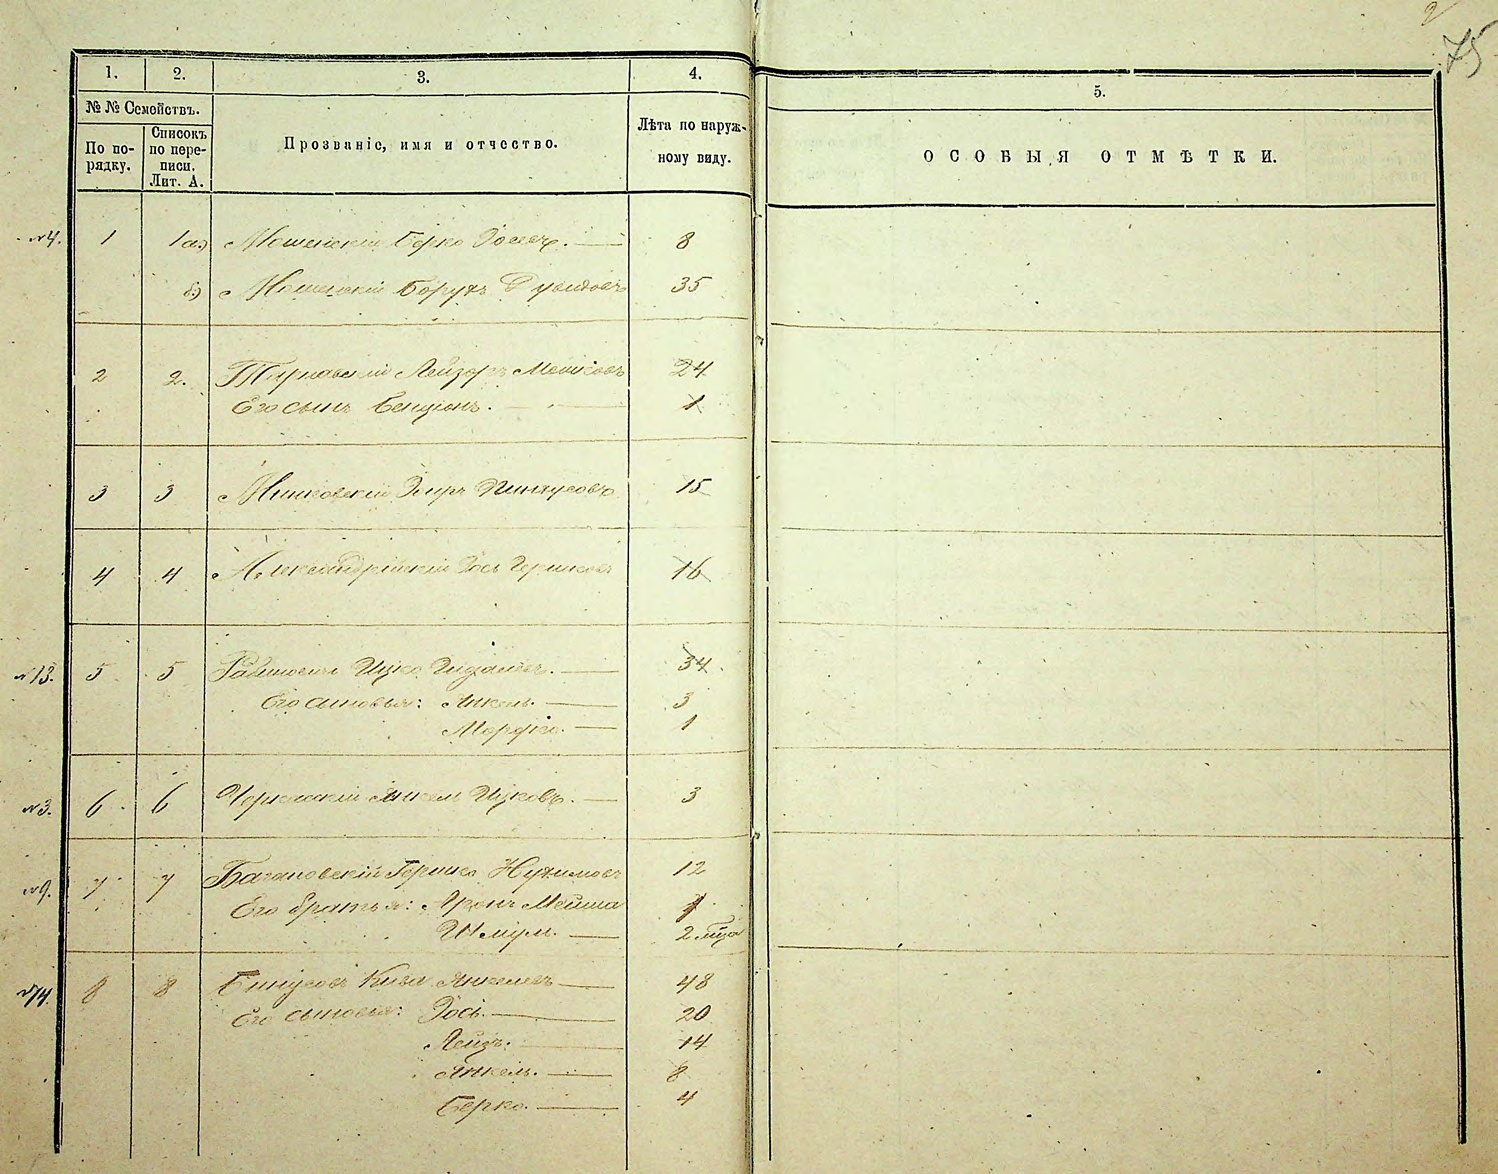 2
75
1. 2. 3. 4. 5.
№ № Семействъ.
По по-
рядку.
Списокъ
по пере-
писи.
Лит. А.
Прозваніе, имя и отчество.
Лѣта по наруж-
ному виду.
ОСОБЫЯ ОТМѢТКИ.
№4. 1 1а) Мошенскій Берко 8
б) Мошенскій Борухъ Дувидовъ 35
2 2. Тирновскій Лейзоръ Мошковъ 24
Его сынъ Бенціонъ. 1
3 3 Минковскій Пинхусовъ 15
4 4 Александрійскій Іось Гершковъ 16
№13. 5 5 Рабиновичъ Ицко 34
Его сыновья: Янкель. 3
Мордко. 1
№3. 6 6 Черкасскій Янкель Ицковъ. 3
№9. 7 7 Богановскій Гершко Нухимовъ 12
Его братья: Аронъ Мейша
Шміул. 2
№14. 8 8 Бинусовъ Кива Янкелевъ 48
Его сыновья: Іось. 20
Лейзъ. 14
Янкель. 8
Берко. 4